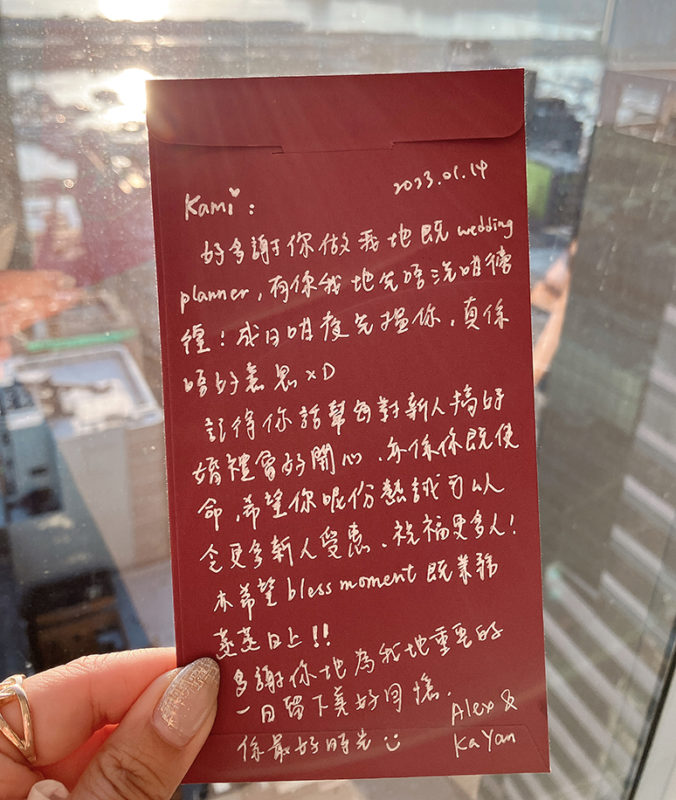 2023.01.14
Kami:
好多謝你做我地既wedding
planner, 有你我地先唔洗咁徬
徨! 成日咁夜先搵你, 真係
唔好意思 xD
記得你話幫每對新人搞好
婚禮會好開心、亦係你既使
命, 希望你呢份熱誠可以
令更多新人受惠、祝福更多人!
亦希望bless moment既業務
蒸蒸日上!!
多謝你地為我地重要的
一日留下美好回憶.
係最好時光
Alex &
Ka Yan